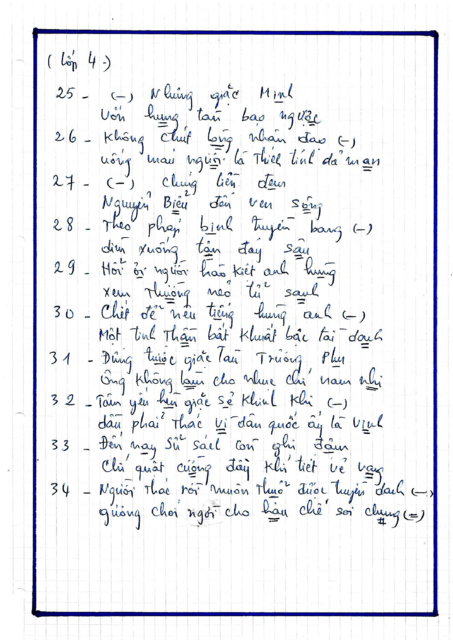 (Lớp 4-)
25 - (-) Nhưng giặc Minh
vốn hung tàn bạo ngược
26 - Không chút lòng nhân đạo (-)
uống máu người là thích tính dã man
27 - (-) chúng liền đem
Nguyễn Biểu đến ven sông
28 - Theo pháp binh tuyên bang (-)
dìm xuống tận đáy sâu
29 - Hỡi ôi người hào kiệt anh hùng
xem thường nẻo tử sanh
30 - Chết để nêu tiếng hùng anh (-)
Một tinh thần bất khuất bậc tài danh
31 - Đứng trước giặc Tàu Trương Phụ
ông không làm cho nhục chí nam nhi
32 - Tâm yếu hèn giặc sẽ khinh khi (-)
dẫu phải thác vì dân quốc ấy là vinh
33 - Đến nay sử sách còn ghi đậm
Chí quật cường đầy khí tiết vẻ vang
34 - Người thác rồi muôn thuở được truyền danh (-)
gương chói ngời cho hậu thế soi chung (=)